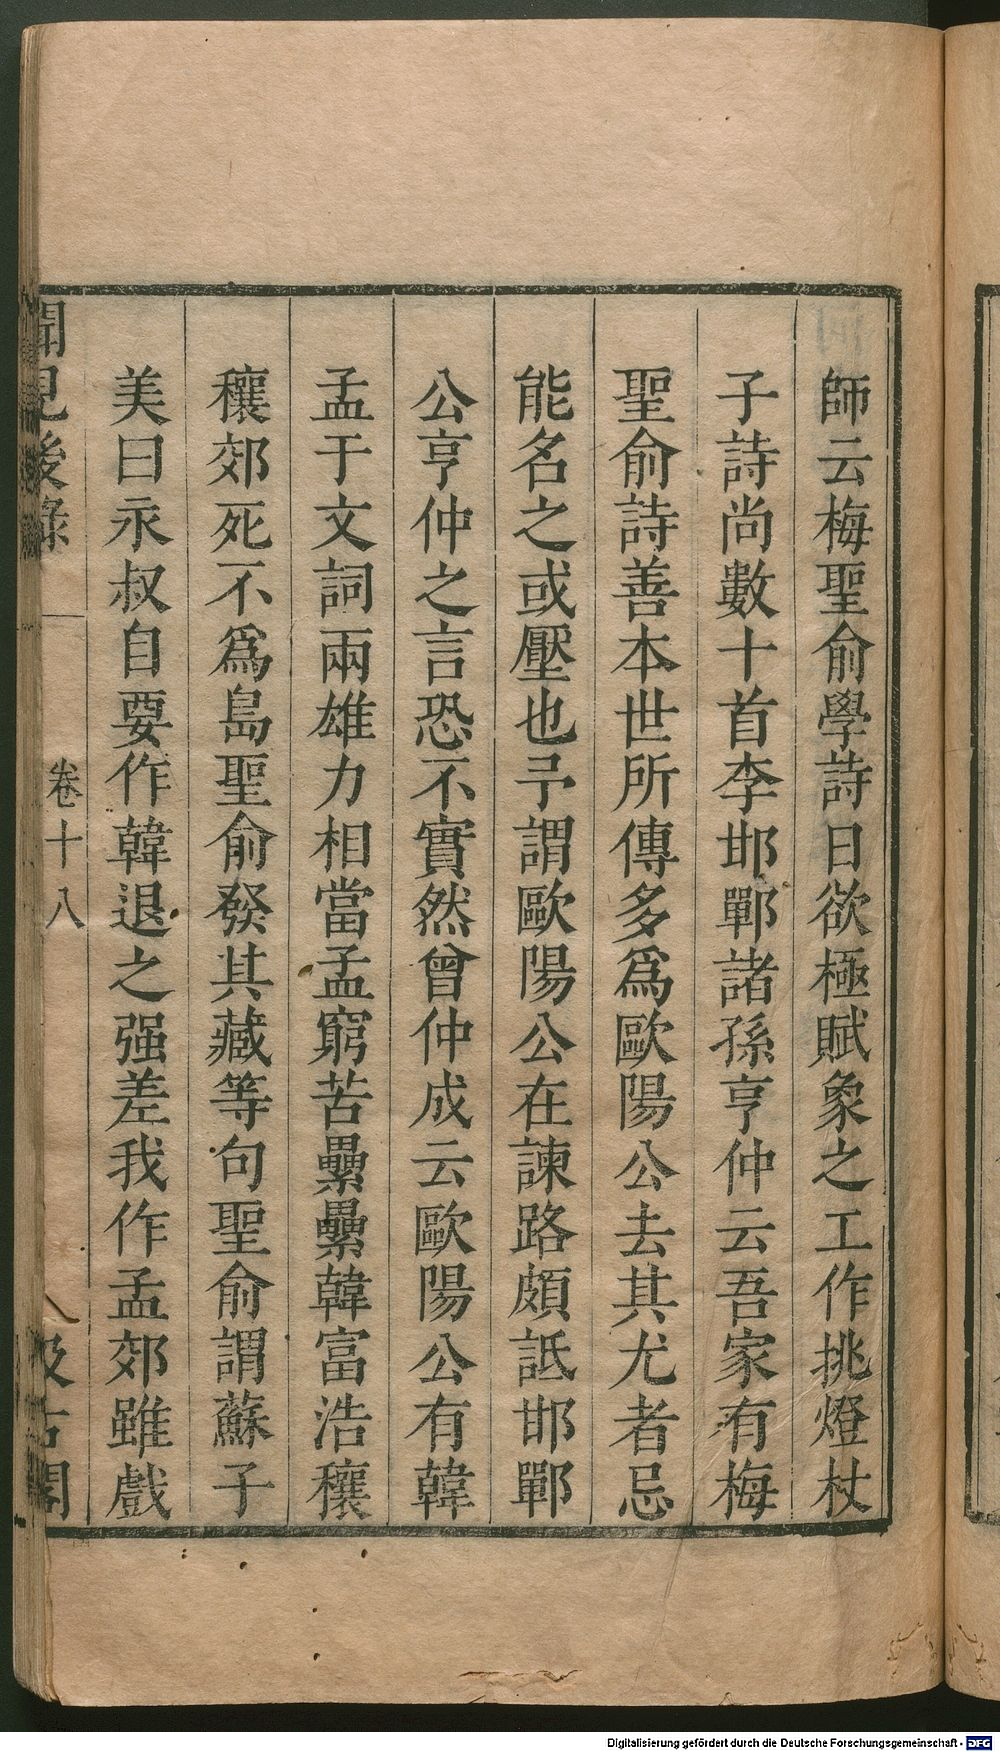 師云梅聖俞學詩日欲極賦象之工作挑燈杖
子詩尚數十首李邯鄲諸孫亨仲云吾家有梅
聖俞詩善本世所傳多為歐陽公去其尤者忌
能名之或壓也予謂歐陽公在諫路頗詆邯鄲
公亨仲之言恐不實然曾仲成云歐陽公有韓
孟于文詞兩雄力相當孟窮苦纍纍韓富浩穰
穰郊死不為島聖俞發其藏等句聖俞謂蘇子
美曰永叔自要作韓退之强差我作孟郊雖戲
聞見後錄 卷十八 汲古閣
Digitalisierung gefördert durch die Deutsche Forschungsgemeinschaft - DFG